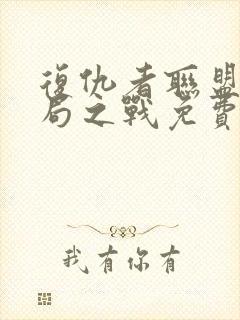 復仇者聯盟
局之戰免費
我有你有